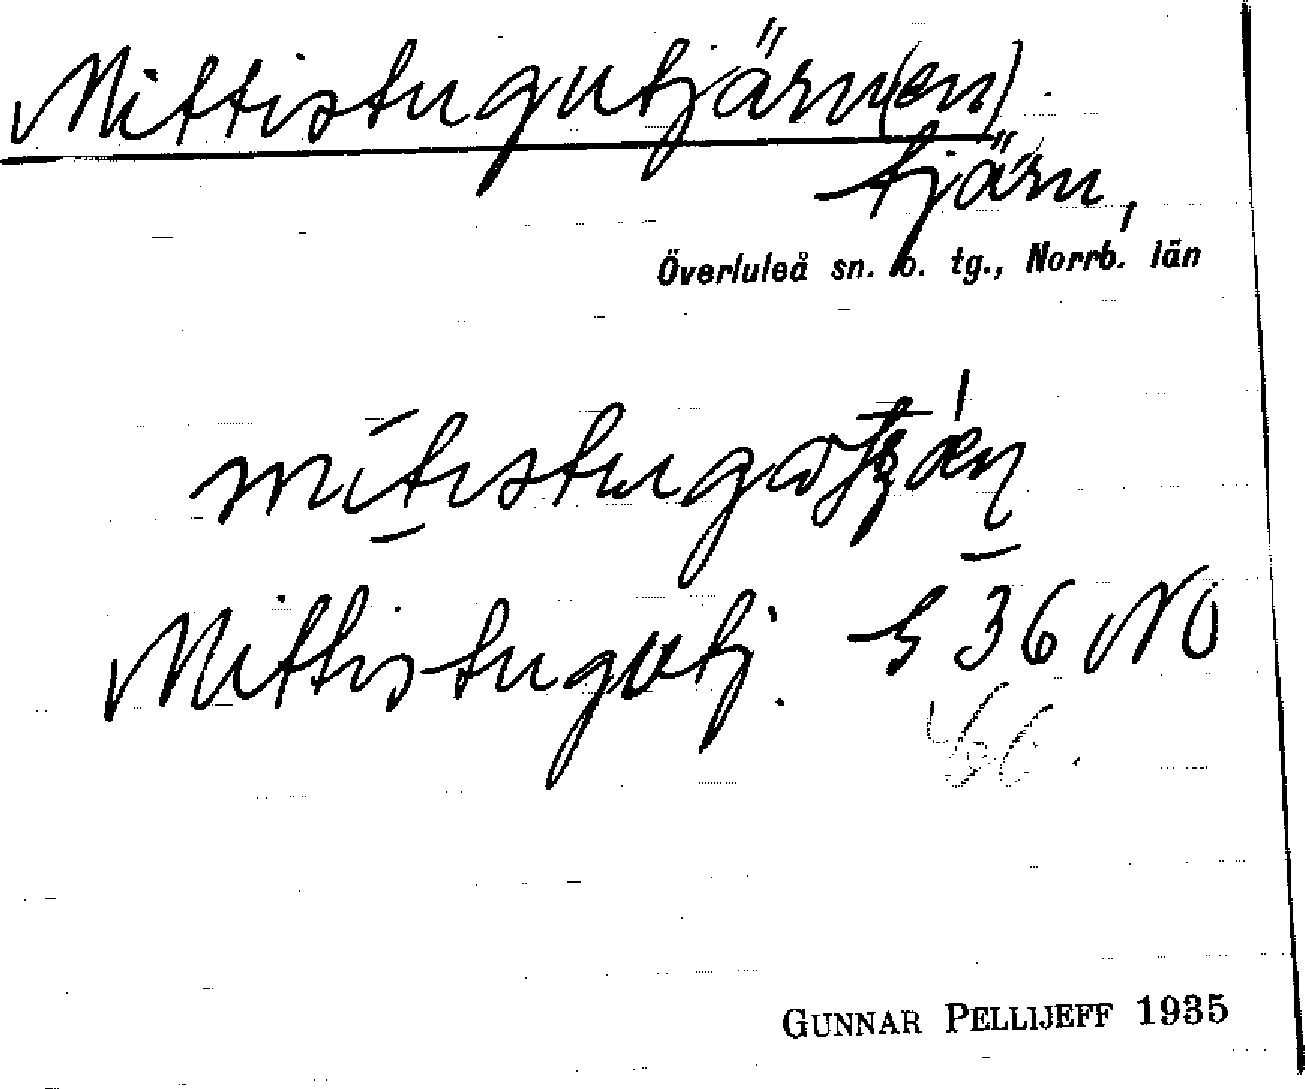 Mittistugutjärn(en)
tjärn,
Överluleå sn. o. tg., Norrb. län
Mittistugutj. S 36 NO
GUNNAR PELLIJEFF 1935